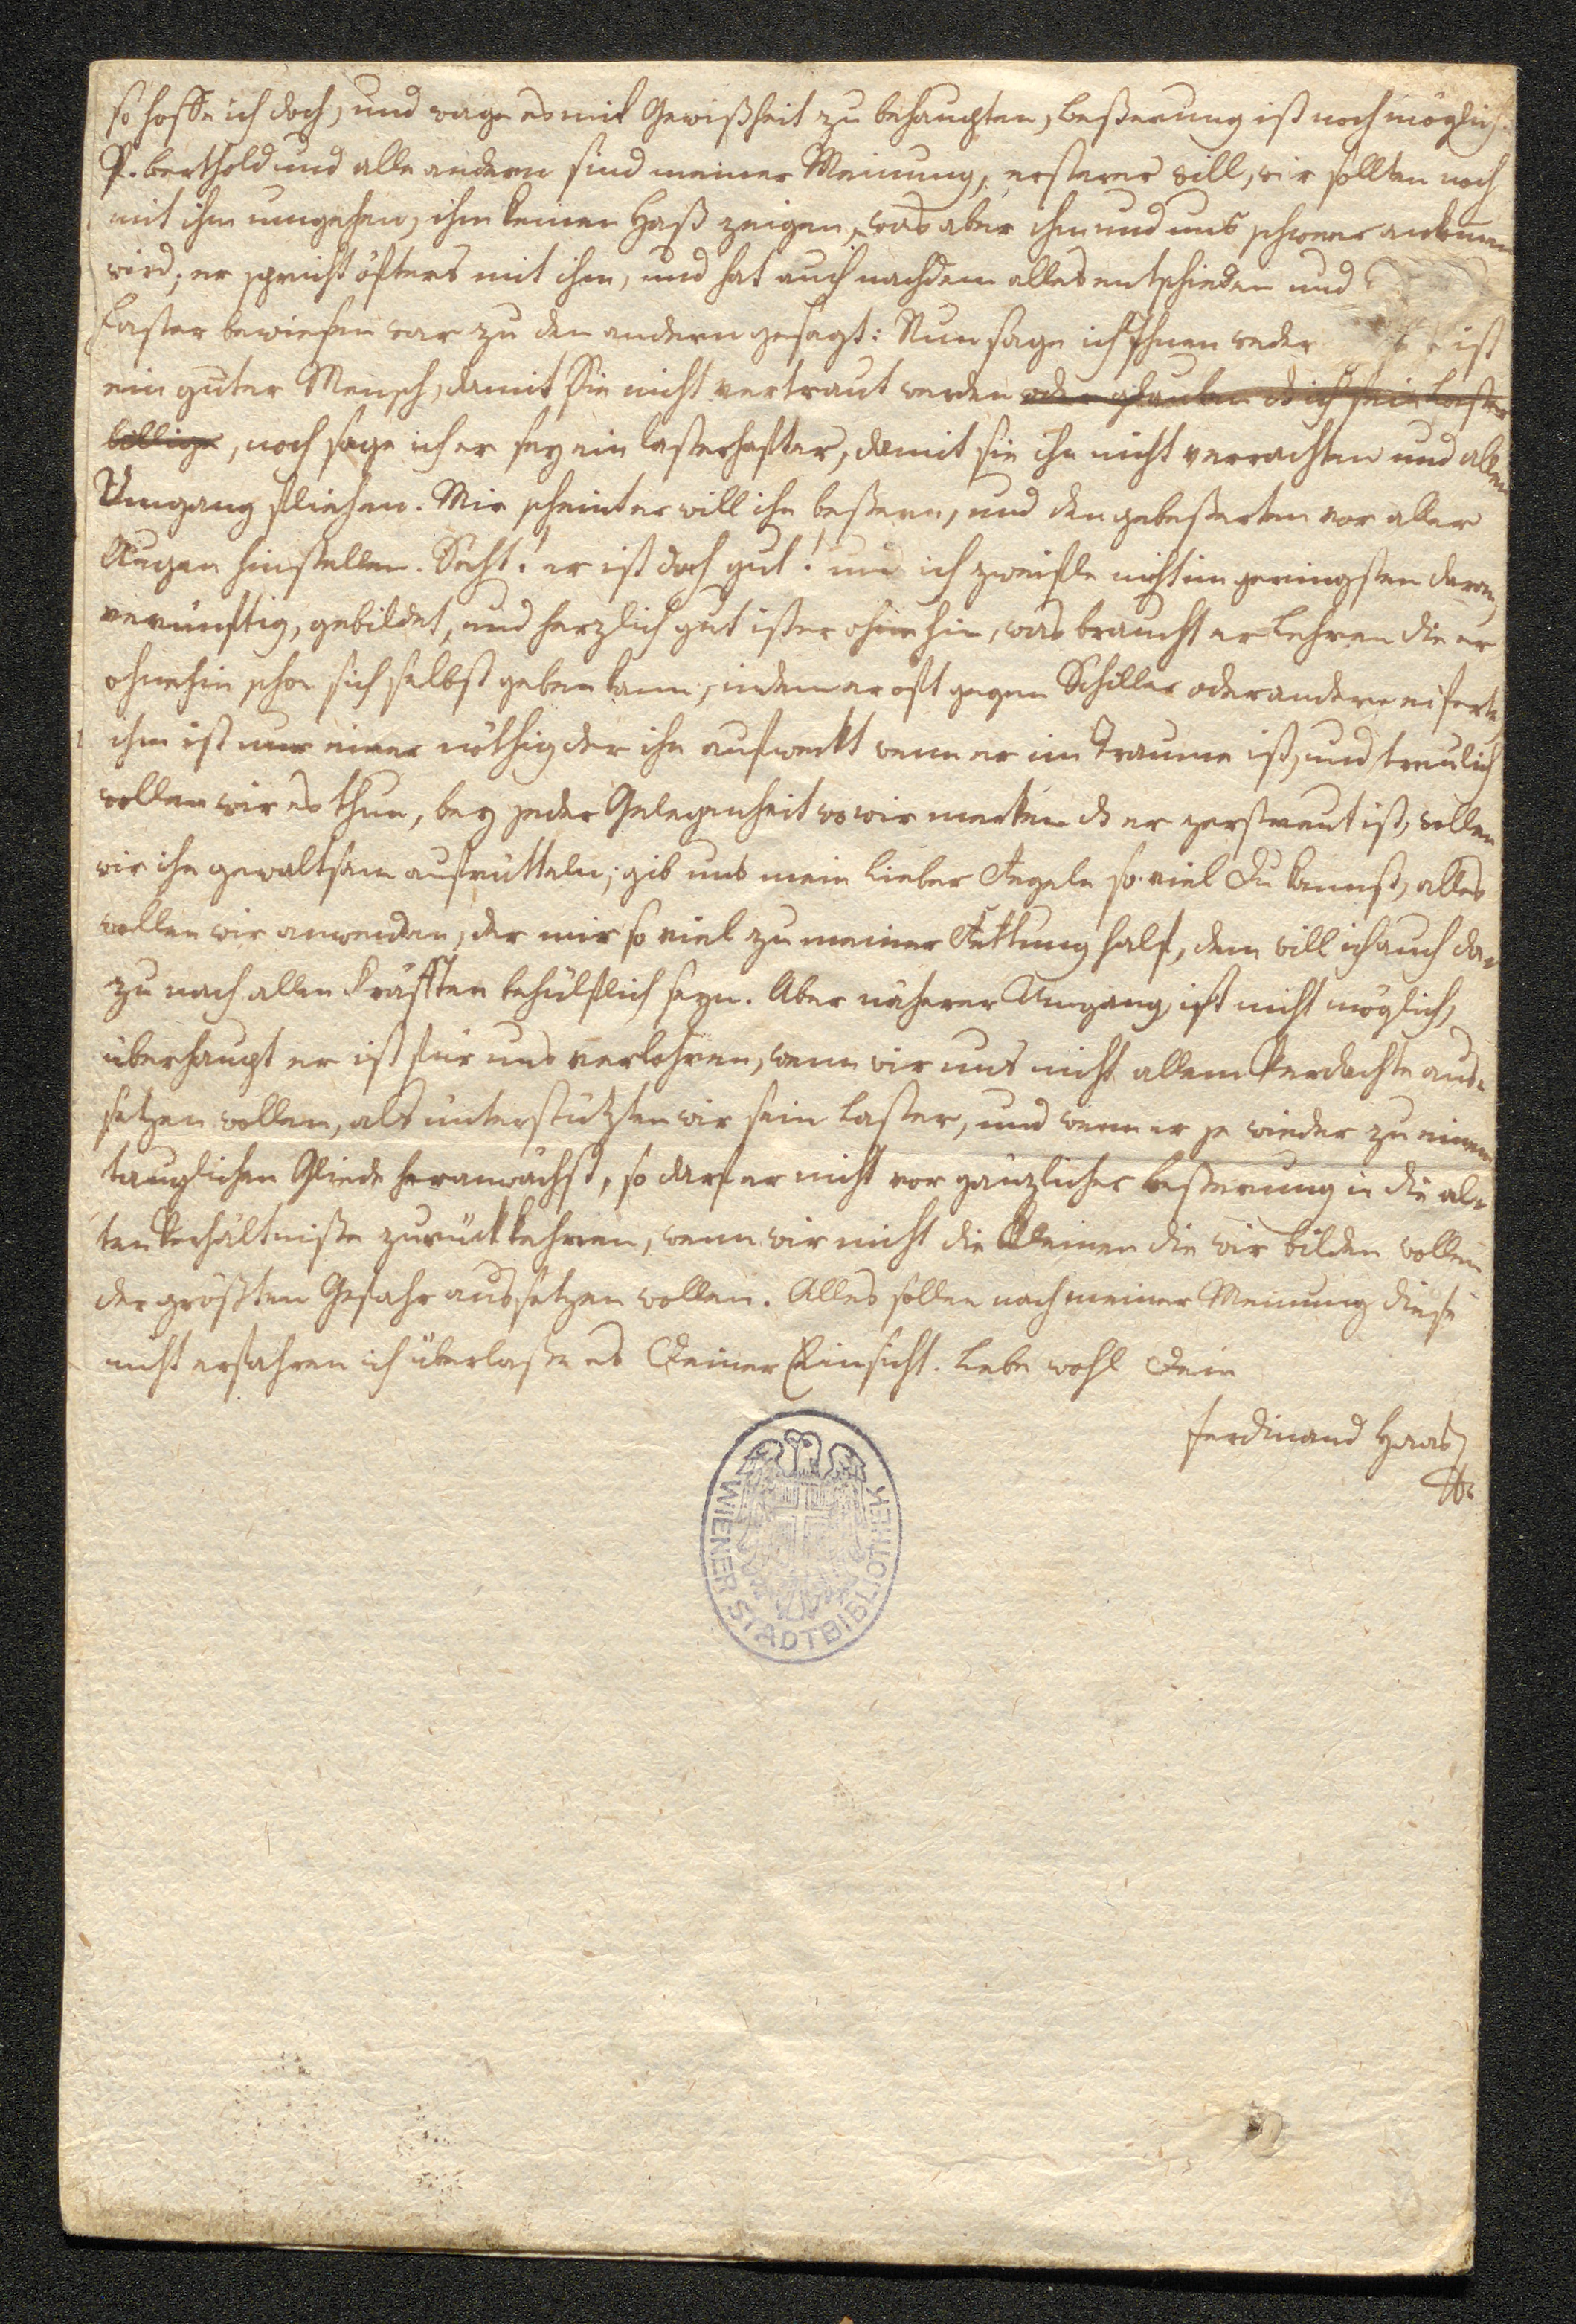 so hoffe ich doch, und wage es mit Gewißheit zu behaupten, Beßerung ist noch möglich.
P. Berthold und alle andern sind meiner Meinung, ersterer will, wir sollten noch
mit ihm umgehen, ihm keinen Haß zeigen, was aber ihm und uns schwer ankomen
wird; er spricht öfters mit ihm, und hat auch nachdem alles entschieden und
Laster bewiesen war zu den andern gesagt: Nun sage ich Ihnen weder ist
ein guter Mensch, damit Sie nicht vertraut werden oder glauben dß ich sein Laster
billige, noch sage ich er sey ein lasterhafter, damit sie ihn nicht verachten und allen
Umgang fliehen. Mir scheint er will ihn beßern, und den gebeßerten vor aller
Augen hinstellen. Seht! er ist doch gut! und ich zweifle nicht im geringsten daran,
vernünftig, gebildet, und herzlich gut ist er ohnehin, was braucht er Lehren die er
ohnehin schon sich selbst geben kann, indem er oft gegen Schiller oder andere eiferte,
ihm ist nur einer nöthig der ihn aufweckt wenn er im Traume ist, und treulich
wollen wir es thun, bey jeder Gelegenheit wo wir merken dß er zerstreut ist, wollen
wir ihn gewaltsam aufrütteln; gib uns mein lieber Regeln so viel Du kannst, alles
wollen wir anwenden, der mir so viel zu meiner Rettung half, dem will ich auch da-
zu nach allen Kräften behülflich seyn. Aber näherer Umgang ist nicht möglich,
überhaupt er ist für uns verlohren, wenn wir uns nicht allem Verdachte aus-
setzen wollen, als unterstützten wir sein Laster, und wenn er je wieder zu einem
tauglichen Gliede heranwächst, so darf er nicht vor gänzlicher Beßerung in die al-
ten Verhältniße zurückkehren, wenn wir nicht die Kleinen die wir bilden wollen
der größten Gefahr aussetzen wollen. Alles sollen nach meiner Meinung diese
nicht erfahren ich überlaße es Deiner Einsicht. Lebe wohl Dein
Ferdinand Haas
WIENER STADTBIBLIOTHEK